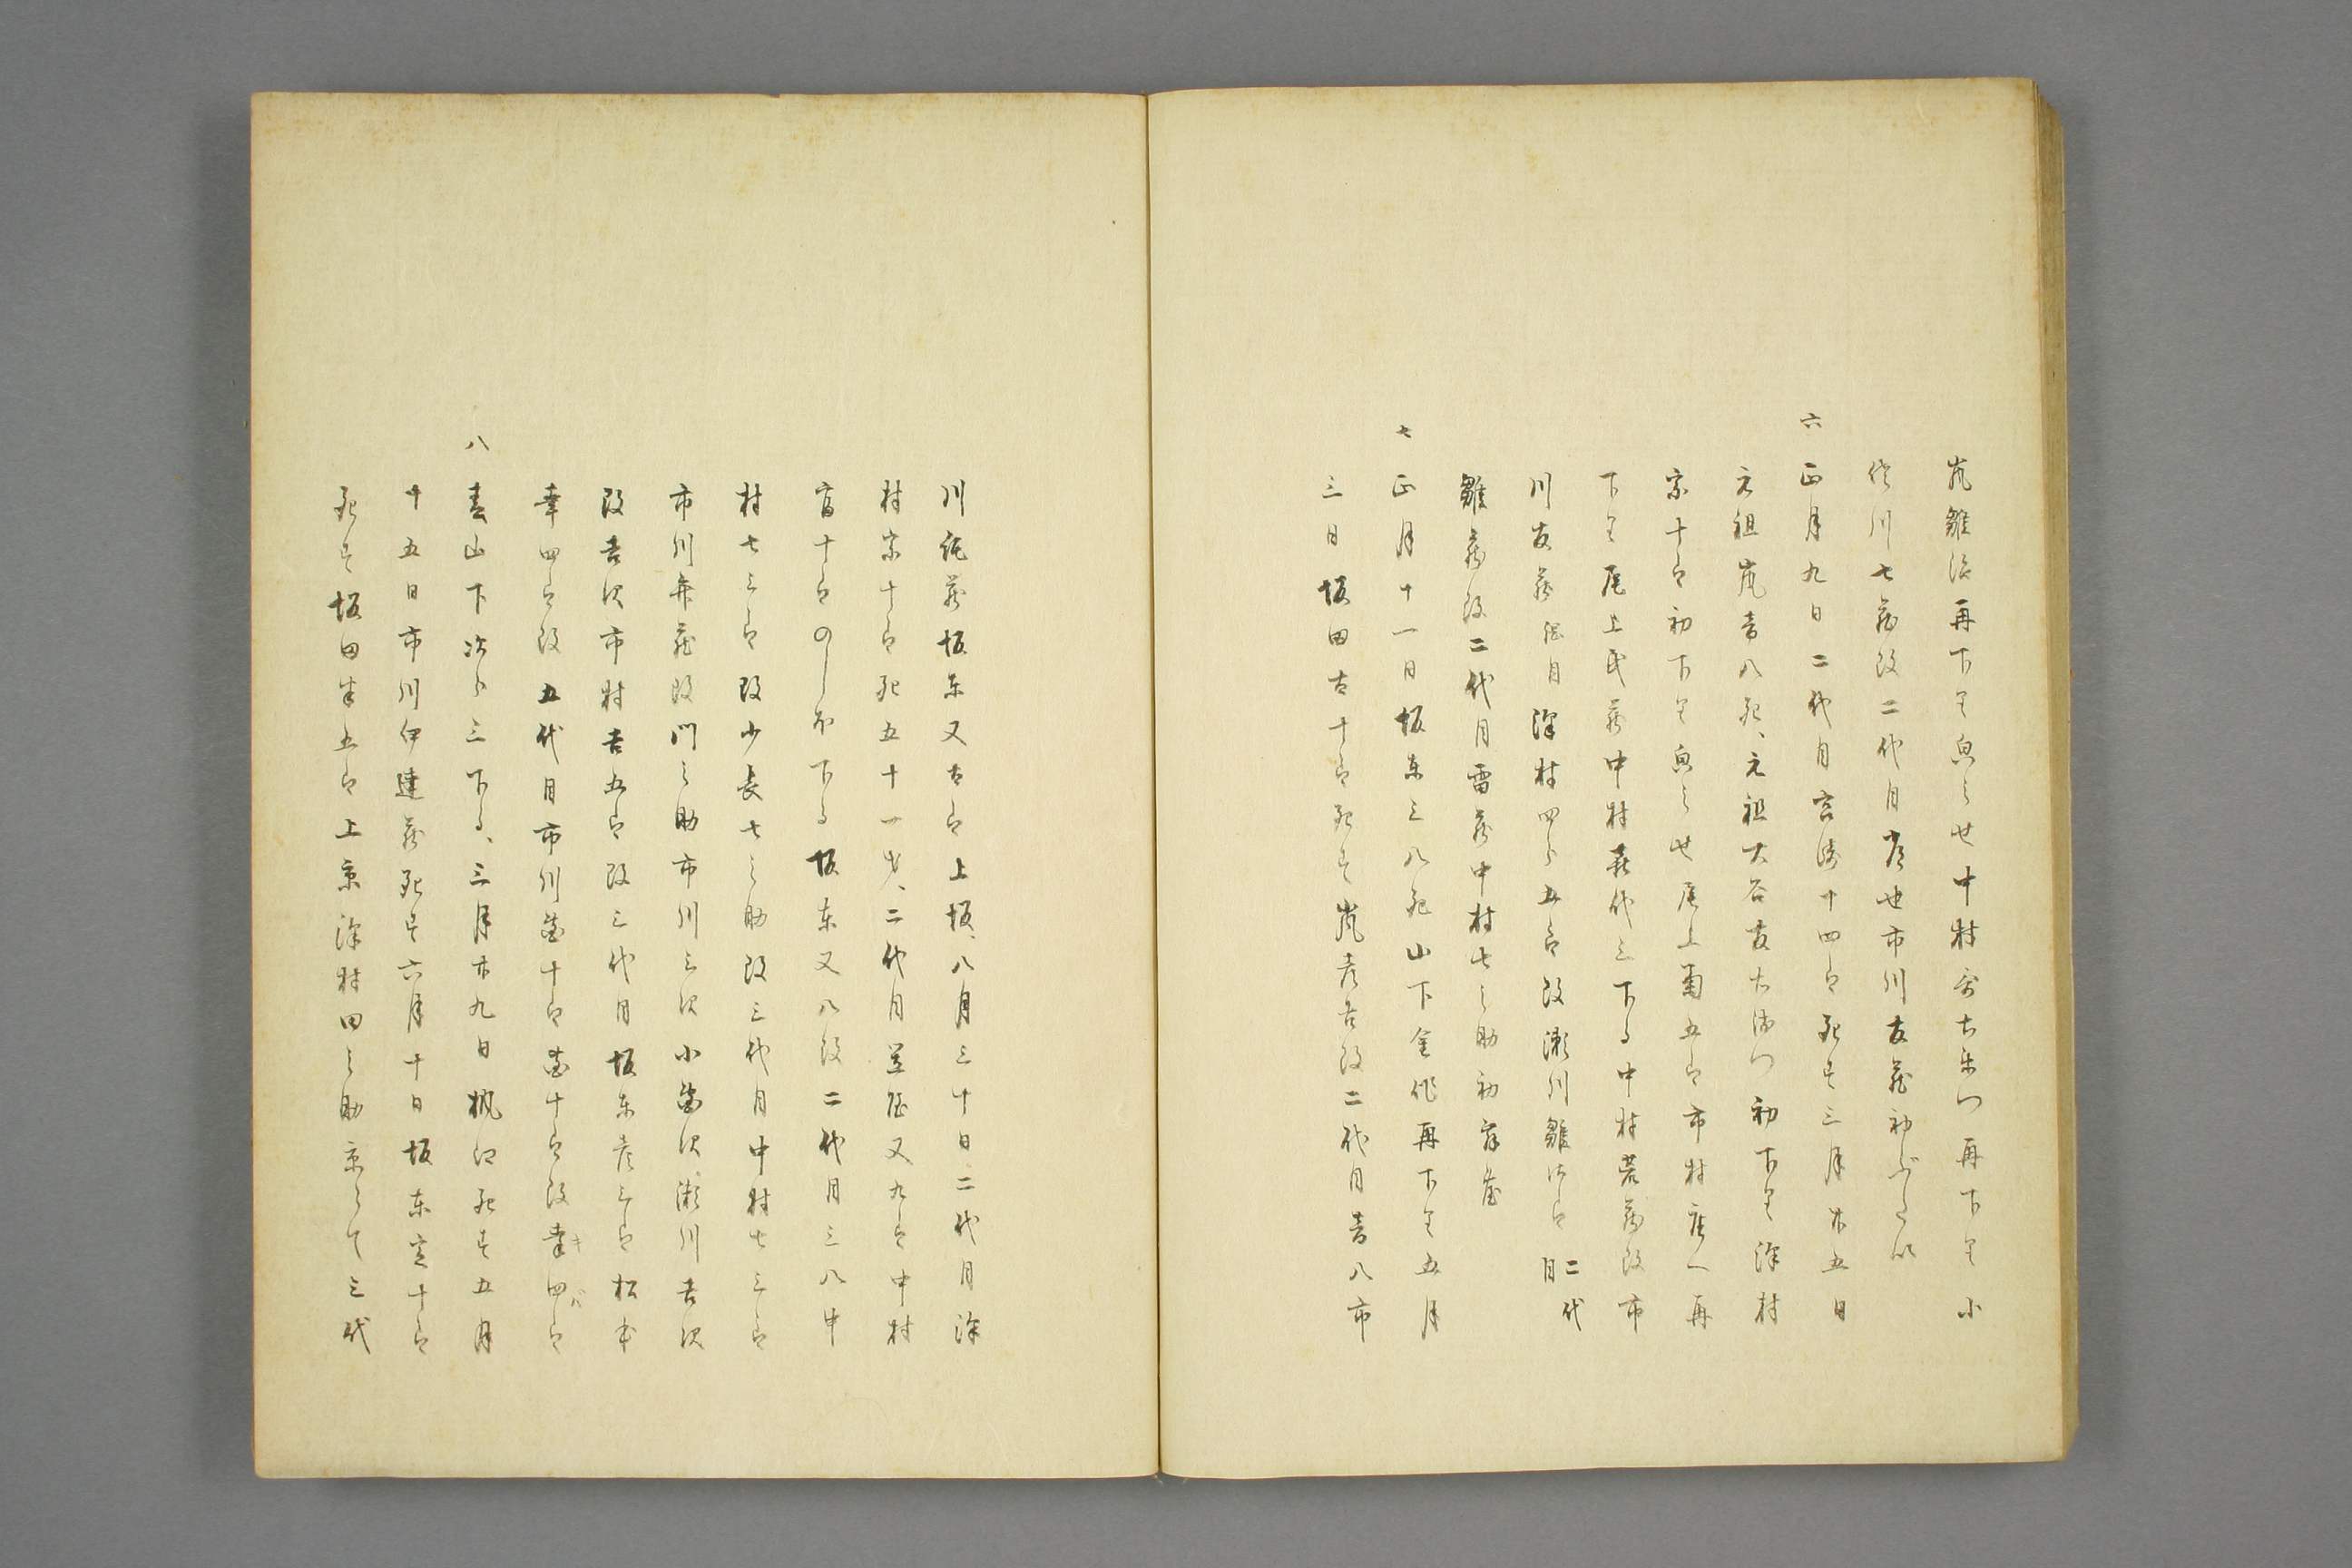 嵐雛治再下り 中村 再下り小
佐川七蔵改二代目 市川友蔵初
六 正月九日二代目 十四郎死す三月廿五日
元祖嵐音八死、元祖大谷友右衛門初下り沢村
宗十郎初下り 尾上菊五郎市村座へ再
下り尾上民蔵中村喜代三下る中村 蔵改市
川友蔵 沢村四郎五郎改瀬川雛次郎二代目
雛蔵改二代目雷蔵中村七之助初
七 正月十一日坂東三八死山下金作再下り五月
三日坂田古十郎死す嵐音吉改二代目音八市
川純蔵坂東又太郎上坂、八月三十日二代目沢
村宗十郎死五十一才、二代目 又九郎中村
富十郎のしほ下る坂東又八改二代目三八中
村七三郎改少長七之助改三代目中村七三郎
市川弁蔵改門之助市川三次小 次瀬川吉次
改吉次市村吉五郎改三代目坂東彦三郎松本
幸四郎改五代目市川団十郎 団十郎改幸四郎
八 春山下次郎三下る、三月廿九日 死す五月
十五日市川伊達蔵死す六月十日坂東定十郎
死す坂田半五郎上京沢村田之助京にて三代